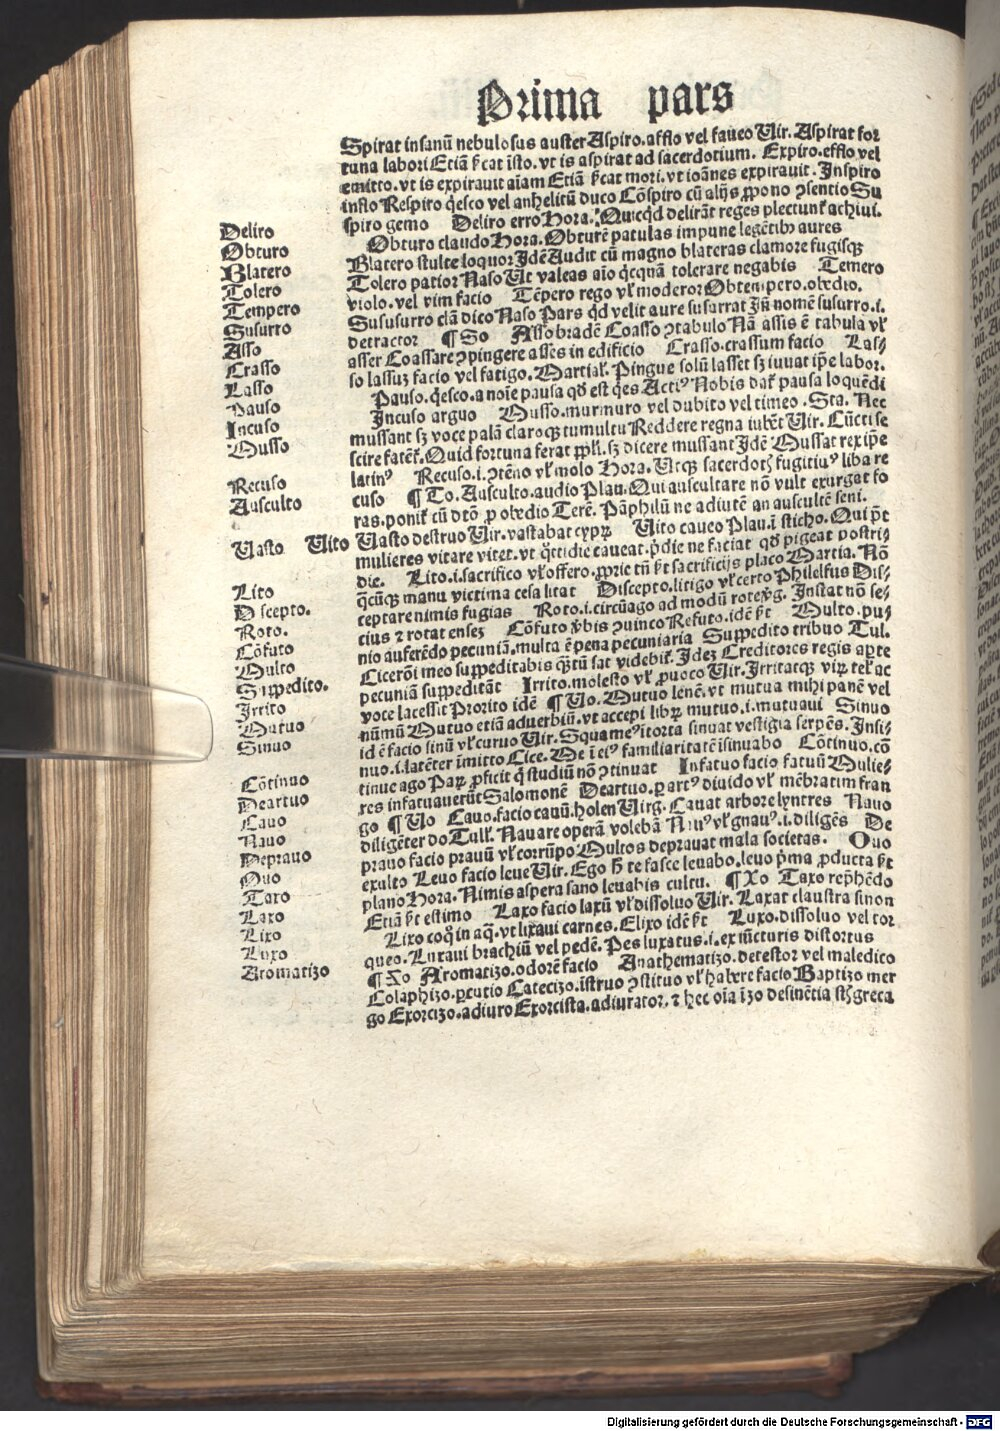 Prima pars
Spirat insanũ nebulosus auster Aspiro. afflo vel faueo Uir. Aspirat for
tuna labori Etiã ẜcat isto. vt is aspirat ad sacerdotium. Expiro. efflo vel
emitto. vt is expirauit aĩam Etiã ẜcat mori. vt ioãnes expirauit. Inspiro
inflo Respiro q̃esco vel anhelitũ duco Cõspiro cũ alijs ꝓ pono ꝯsentio Su
spiro gemo Deliro erro Hora. Quicq̃d delirãt reges plectunt᷑ achiui.
Obturo claudo Hora. Obturẽ patulas impune legẽtibꝰ aures
Blatero stulte loquor Idẽ Audit cũ magno blateras clamore fugisqꝫ
Tolero patior Naso Ut valeas aĩo q̃cquã tolerare negabis Temero
violo. vel vim facio Tẽpero rego vl᷑ moderor Obtempero. obedio.
Sususurro clã dico Naso Pars qd̓ velit aure susurrat Iñ nomẽ susurro. i.
detractor ¶ So Asso bradẽ Coasso ꝯtabulo Nã assis ẽ tabula vl᷑
asser Coassare ꝯpingere asses in edificio Crasso. crassum facio Las⸗
so lassuꝫ facio vel fatigo. Martial᷑. Pingue solũ lasset sꝫ iuuat ip̃e labor.
Pauso. q̃esco. a noĩe pausa qd̓ est q̃es Actiꝰ Nobis dat᷑ pausa loquẽdi
Incuso arguo Musso. murmuro vel dubito vel timeo. Sta. Nec
mussant sꝫ voce palã claroqꝫ tumultu Reddere regna iubẽt Uir. Cũcti se
scire fatẽt᷑. Quid fortuna ferat ppl̓i. sꝫ dicere mussant Idẽ Mussat rex ip̃e
latinꝰ Recuso. i. ꝯtẽno vl᷑ molo Hora. Utcqꝫ sacerdotꝭ fugitiuꝰ liba re
cuso ¶ To. Ausculto. audio Plau. Qui auscultare nõ vult exurgat fo
ras. ponit᷑ cũ dtõ ꝓ obedio Terẽ. Pãphilũ ne adiutẽ an auscultẽ seni.
Uito Uasto destruo Uir. vastabat cypꝝ Uito caueo Plau. ĩ sticho. Qui p̃t
mulieres vitare vitet. vt q̃ttidie caueat. p̃die ne faciat qd̓ pigeat postri⸗
die. Lito. i. sacrifico vl᷑ offero. ꝓprie tñ ẜt sacrificijs placo Martia. Nõ
q̃cũqꝫ manu victima cesa litat Discepto. litigo vl᷑ certo Philelfus Dis⸗
ceptare nimis fugias Roto. i. circũago ad modũ rote Uirg. Instat nõ se⸗
cius ⁊ rotat enseꝫ Cõfuto v̓bis ꝯuinco Refuto. idẽ ẜt Multo. pu⸗
nio auferẽdo pecuniã. multa ẽ pena pecuniaria Suppedito tribuo Tul.
Cicerõi meo suppeditabis q̃tũ sat videbit᷑. Ideꝫ Creditores regis aꝑte
pecuniã suppeditãt Irrito. molesto vl᷑ ꝓuoco Uir. Irritatqꝫ virꝫ tel᷑ ac
voce lacessit Prorito idẽ ¶ Uo. Mutuo lenẽ. vt mutua mihi panẽ vel
nũmũ Mutuo etiã aduerbiũ. vt accepi libꝝ mutuo. i. mutuaui Sinuo
id ẽ facio sinũ vl᷑ curuo Uir. Squameꝰ ĩtorta sinuat vestigia serpẽs. Insi⸗
nuo. i. latẽter ĩmitto Cice. Me ĩ eiꝰ familiaritatẽ ĩsinuabo Cõtinuo. cõ
tinue ago Paꝝ ꝓficit q̓ studiũ nõ ꝯtinuat Infatuo facio fatuũ Mulie⸗
res infatuauerũt Salomonẽ Deartuo. ꝑ artꝰ diuido vl᷑ mẽbratim fran
go ¶ Uo Cauo. facio cauũ. holen Uirg. Cauat arbore lyntres Nauo
diligẽter do Tull᷑. Nauare operã volebã Nauꝰ vl᷑ gnauꝰ. i. diligẽs De
prauo facio prauũ vl᷑ corrũpo Multos deprauat mala societas. Ouo
exulto Leuo facio leue Uir. Ego h̃ te fasce leuabo. leuo p̃ma ꝓducta ẜt
plano Hora. Nimis aspera sano leuabis cultu. ¶ Xo Taxo rep̃hẽdo
Etiã ẜt estimo Laxo facio laxũ vl᷑ dissoluo Uir. Laxat claustra sinon
Lixo coq̓ in aq̃. vt lixaui carnes. Elixo idẽ ẜt Luxo. dissoluo vel tor
queo. Luxaui brachiũ vel pedẽ. Pes luxatus. i. ex iũcturis distortus
¶ Zo Aromatizo. odorẽ facio Anathematizo. detestor vel maledico
Colaphizo. ꝑcutio Catecizo. ĩstruo ꝯstituo vl᷑ habere facio Baptizo mer
go Exorcizo. adiuro Exorcista. adiurator. ⁊ hec oĩa ĩ zo desinẽtia st̓ greca
Deliro
Obturo
Blatero
Tolero
Tempero
Susurro
Asso
Crasso
Lasso
Pauso
Incuso
Musso
Recuso
Ausculto
Uasto
Lito
Discepto.
Roto.
Cõfuto
Multo
Suppedito.
Irrito
Mutuo
Sinuo
Cõtinuo
Deartuo
Cauo
Nauo
Deprauo
Ouo
Taxo
Laxo
Lixo
Luxo
Aromatizo
Digitalisierung gefördert durch die Deutsche Forschungsgemeinschaft - DFG